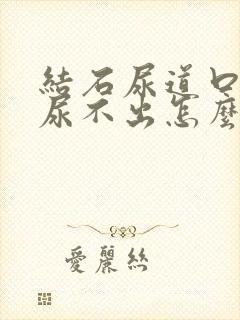 結石尿道口
尿不出怎麼
愛麗絲